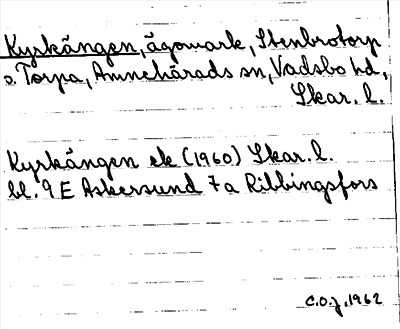 Kyrkängen, ägomark, Stenbrotorp
o. Torpa, Amnehärads sn, Vadsbo hd,
Skar. l.
Kyrkängen ek (1960) Skar. l.
bl. 9 E Askersund 7a Ribbingsfors
C.O.J., 1962